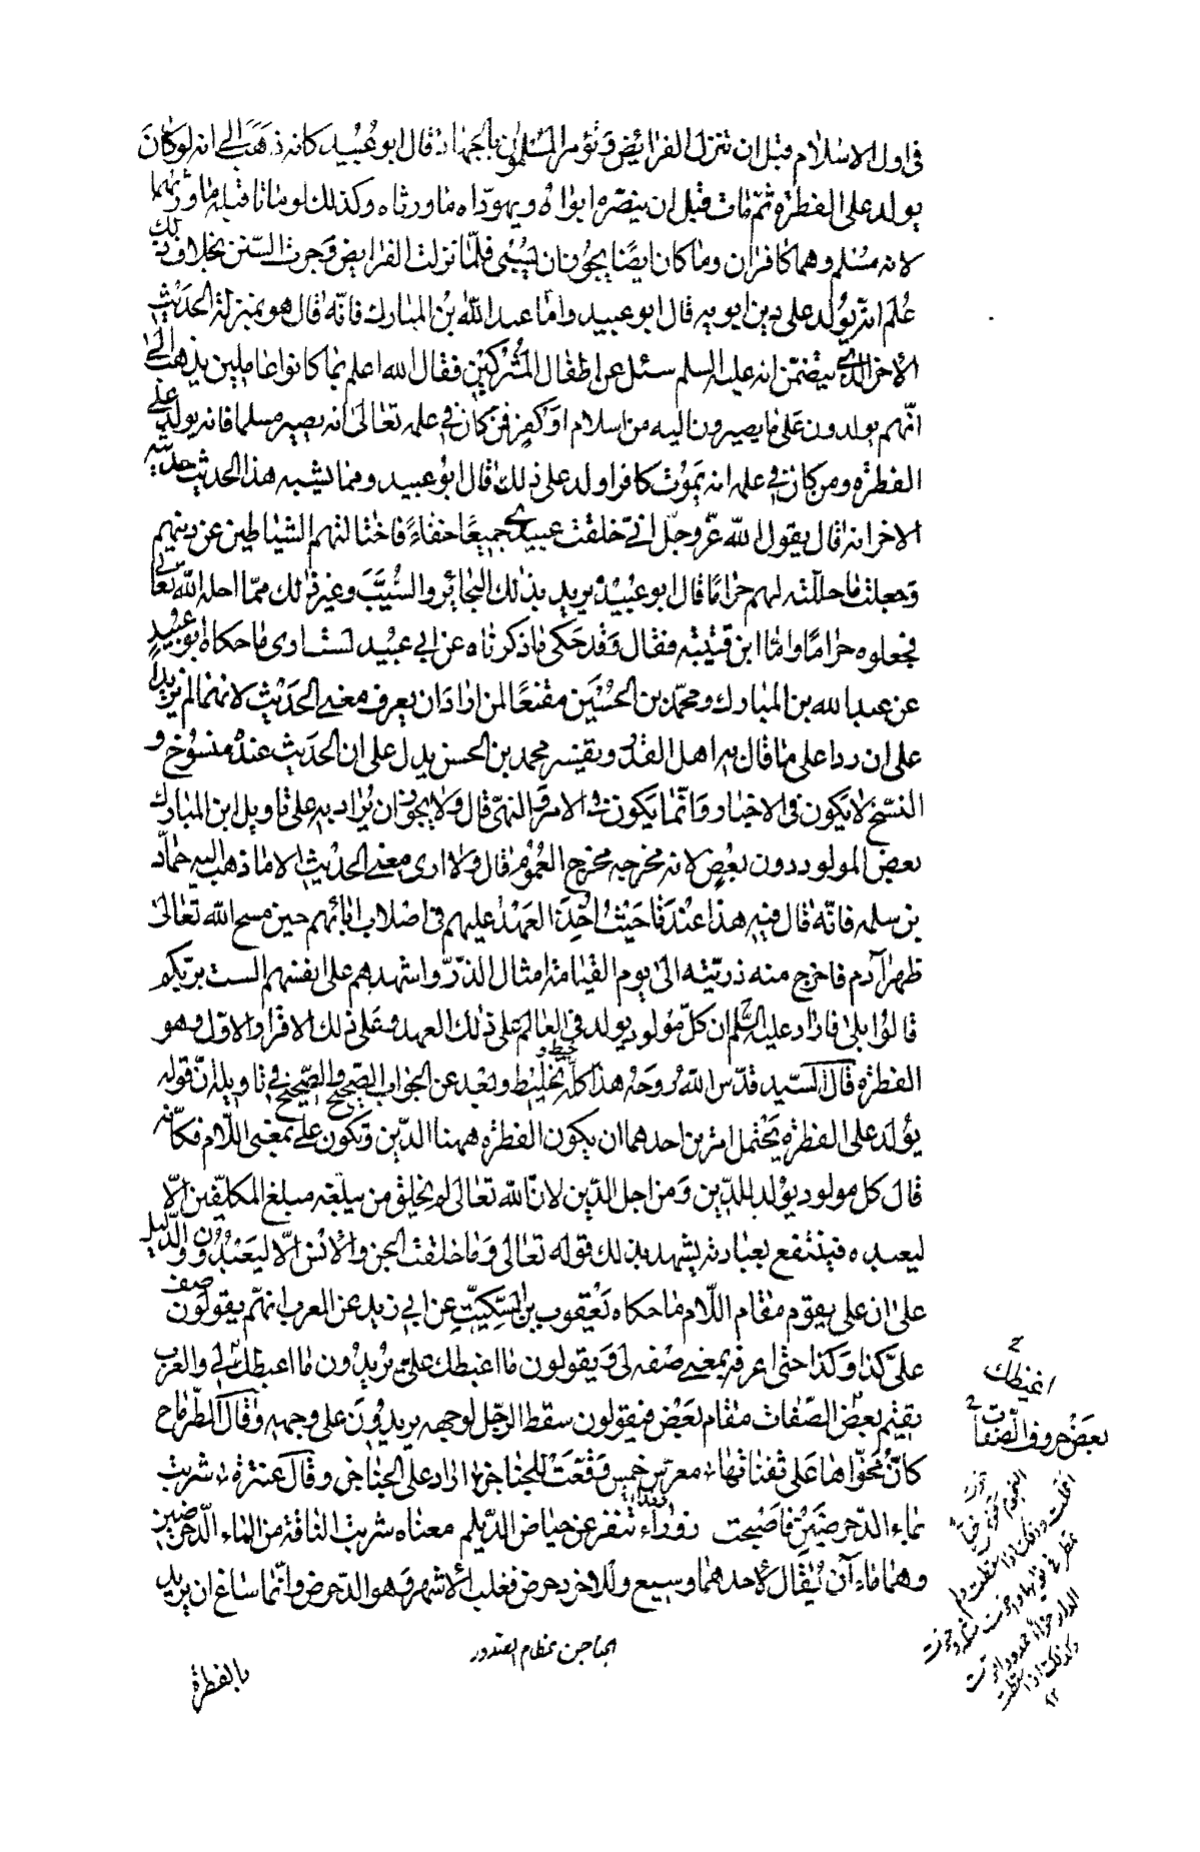 في اول الاسلام قبل ان تنزل الفرائض وتؤمر المسلمون بالجهاد قال ابو عبيد كانه ذهب الى انه لو كان
يولد على الفطرة ثم مات قبل ان ينصره ابواه ويهوداه ما ورثاه وكذلك لو ماتا قبله ما ورثهما
لانه مسلم وهما كافران وما كان ايضا يجوز ان يسبى فلما نزلت الفرايض وجرت السنن بخلاف ذلك
علم انه يولد على دين ابويه قال ابو عبيد واما عبد الله بن المبارك فانه قال هو بمنزلة الحديث
الاخر الذي يتضمن انه عليه السلم سئل عن اطفال المشركين فقال الله اعلم بما كانوا عاملين يذهب الى
انهم يولدون على ما يصيرون اليه من اسلام او كفر فمن كان في علمه تعالى انه يصير مسلما فانه يولد على
الفطرة ومن كان في علمه انه يموت كافرا ولد على ذلك قال ابو عبيد ومما يشبه هذا الحديث حديثه
الاخر انه قال يقول الله عز وجل اني خلقت عبيدي جميعا حنفاء فاختالتهم الشياطين عن دينهم
وجعلت ما حللته لهم حراما قال ابو عبيد يريد بذلك البحائر والسيب وغير ذلك مما احله الله تعالى
فجعلوه حراما واما ابن قتيبة فقال وقد حكى ما ذكرناه عن ابي عبيد لست ارى ما حكاه ابو عبيد
عن عبد الله بن المبارك ومحمد بن الحسين مقنعا لمن اراد ان يعرف معنى الحديث لانهما لم يزيدا
على ان ردا على ما قال به اهل القدر وتفسير محمد بن الحسن يدل على ان الحديث عنده منسوخ و
النسخ لا يكون في الاخبار وانما يكون في الامر والنهي قال ولا يجوز ان يراد به على تاويل ابن المبارك
بعض المولود دون بعض لانه مخرجه مخرج العموم قال ولا ارى معنى الحديث الا ما ذهب اليه حماد
بن سلمه فانه قال فيه هذا عندنا حيث اخذ العهد عليهم في اصلاب ابائهم حين مسح الله تعالى
ظهر آدم فاخرج منه ذريته الى يوم القيامة امثال الذر واشهدهم على انفسهم الست بربكم
قالوا بلى فاراد عليه السلم ان كل مولود يولد في العالم على ذلك العهد وعلى ذلك الاقرار الاول وهو
الفطرة قال السيد قدس الله روحه هذا كله تخليط وبعد عن الجواب الصحيح والصحيح في تاويله ان قوله
يولد على الفطرة يحتمل امرين احدهما ان يكون الفطرة ههنا الدين وتكون على بمعنى اللام فكانه
قال كل مولود يولد للدين ومن اجل الدين لان الله تعالى لم يخلق من يبلغه مبلغ المكلفين الا
ليعبده فينتفع بعبادته يشهد بذلك قوله تعالى وما خلقت الجن والانس الا ليعبدون والدليل
على ان على يقوم مقام اللام ما حكاه يعقوب بن السكيت عن ابي زيد عن العرب انهم يقولون صف
على كذا وكذا حتى اعرفه بمعنى صفه لي ويقولون ما اغبطك علي يريدون ما اغبطك لي والعرب
يقيم بعض الصفات مقام بعض فيقولون سقط الرجل لوجهه يريدون على وجهه وقال الطرماح
كان مخواها على ثفناتها معرس خمس وقعت للجناجن اراد على الجناجن وقال عنترة شربت
بماء الدحرضين فاصبحت زوراء تنفر عن حياض الديلم معناه شربت الناقة من الماء الدحرضين
وهما ماءان يقال لاحدهما وسيع وللاخر دحرض فغلب الاشهر وهو الدحرض وانما ساغ ان يريد
الجناجن عظام الصدور
بالفطرة
اغبطك
بعض حروف الصفات